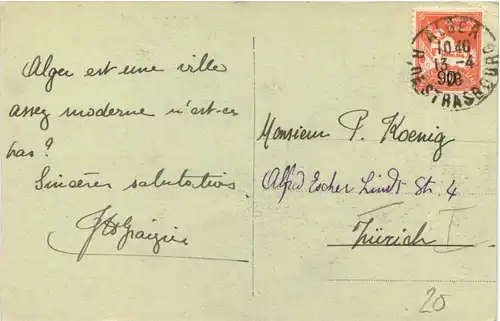 Alger est une ville
assez moderne n'est-ce
pas?
Sincères salutations
ALGER
R. DE STRASBOURG
10 40
13 - 4
Monsieur P. Koenig
Alfred Escher Linds Str. 4
Zürich I
20